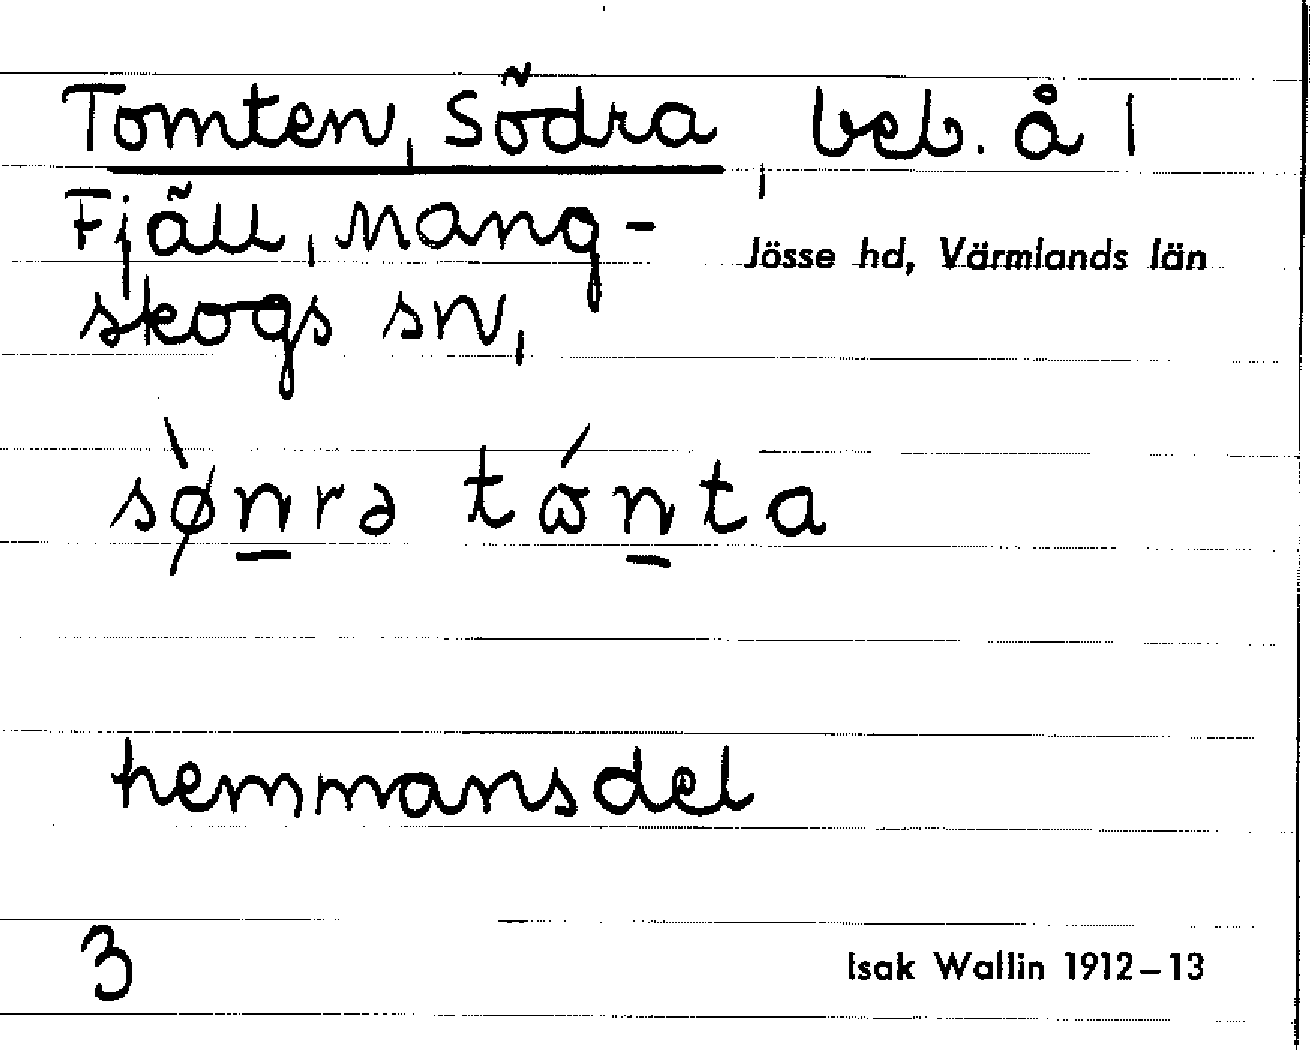 Tomten, Södra, beb. å 1
Fjäll, Mang-
skogs sn,
Jösse hd, Värmlands län
sø̀n̲rə tɷ́n̲ta
hemmansdel
3
Isak Wallin 1912–13